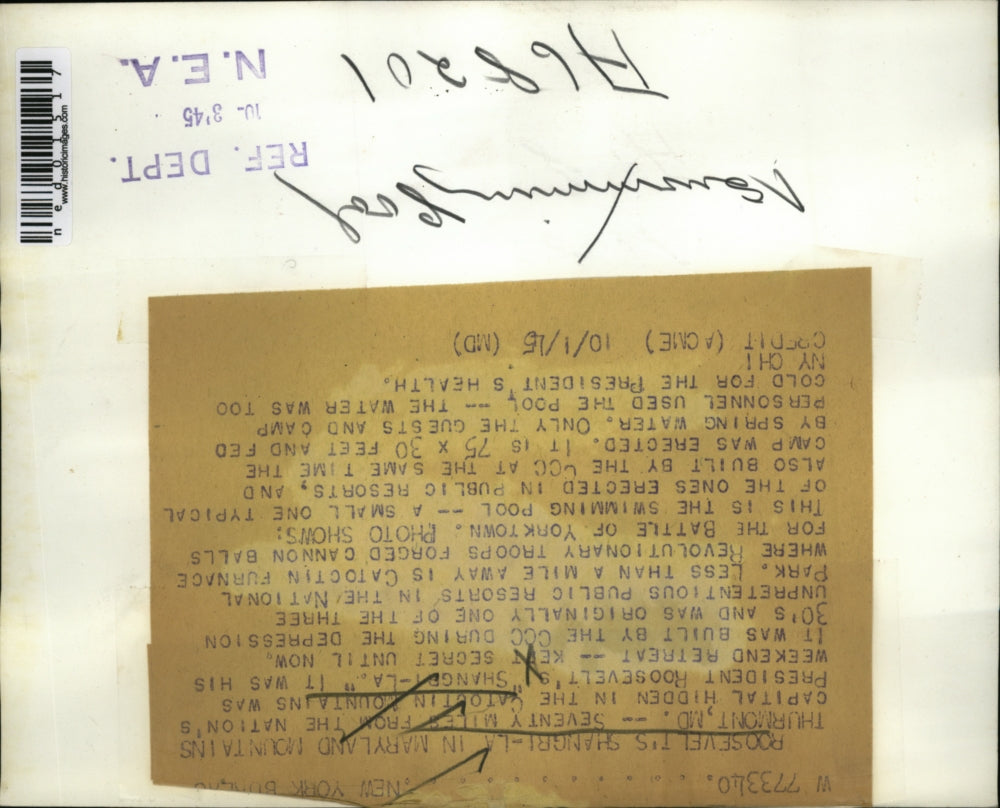 W 773340. . . . . . . . . . . . . NEW YORK BUREAU
ROOSEVELT'S SHANGRI-LA IN MARYLAND MOUNTAINS
THURMONT, MD. -- SEVENTY MILES FROM THE NATION'S
CAPITAL HIDDEN IN THE CATOCTIN MOUNTAINS WAS
PRESIDENT ROOSEVELT'S "SHANGRI-LA." IT WAS HIS
WEEKEND RETREAT -- KEPT SECRET UNTIL NOW.
IT WAS BUILT BY THE CCC DURING THE DEPRESSION
30'S AND WAS ORIGINALLY ONE OF THE THREE
UNPRETENTIOUS PUBLIC RESORTS IN THE NATIONAL
PARK. LESS THAN A MILE AWAY IS CATOCTIN FURNACE
WHERE REVOLUTIONARY TROOPS FORGED CANNON BALLS
FOR THE BATTLE OF YORKTOWN. PHOTO SHOWS:
THIS IS THE SWIMMING POOL -- A SMALL ONE TYPICAL
OF THE ONES ERECTED IN PUBLIC RESORTS, AND
ALSO BUILT BY THE CCC AT THE SAME TIME THE
CAMP WAS ERECTED. IT IS 75 X 30 FEET AND FED
BY SPRING WATER. ONLY THE GUESTS AND CAMP
PERSONNEL USED THE POOL -- THE WATER WAS TOO
COLD FOR THE PRESIDENT'S HEALTH.
NY CHI
CREDIT (ACME) 10/1/45 (MD)
Swimming Pool
REF. DEPT.
10- 3'45
N.E.A.
www.historicimages.com
ned01517